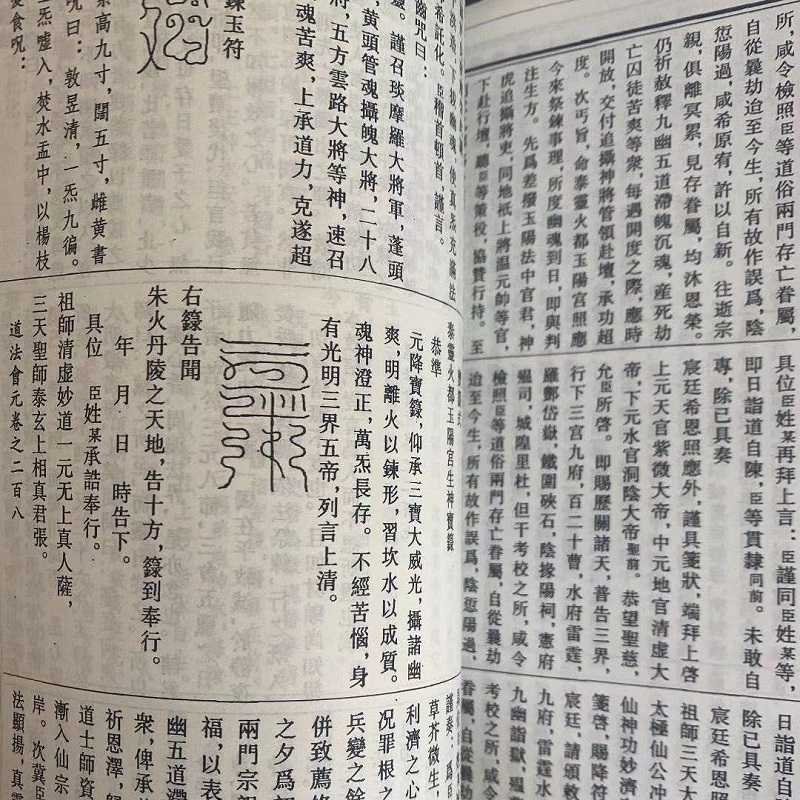 所，咸令檢照臣等道俗兩門存亡眷屬，
自從曩劫迨至今生，所有故作誤爲，陰
愆陽過，咸希原宥，許以自新。往逝宗
親，俱離冥累，見存眷屬，均沐恩榮。
仍祈赦釋九幽五道滯魄沉魂，産死劫
亡囚徒苦爽等衆，每遇開度之際，應時
開放，交付追攝神將管領赴壇，承功超
度。次丐旨，命泰靈火都玉陽宮照應
今來祭鍊事理，所度幽魂到日，即與判
注生方。先爲差撥玉陽法中官君，神
虎追攝將吏，同地祇上將温元帥等官，
下赴行壇，聽臣等策役，協贊行持。至
具位臣姓某再拜上言：臣謹同臣姓某等，
即日詣道自陳，臣等貫隸同前。未敢自
專，除已具奏
宸廷希恩照應外，謹具箋狀，端拜上啓
上元天官紫微大帝，中元地官清虛大
帝，下元水官洞陰大帝聖前。恭望聖慈，
允臣所啓。即賜歷關諸天，普告三界，
行下三宮九府，百二十曹，水府雷霆，
羅酆岱嶽，鐵圍硤石，陰掾陽祠，憲府
瘟司，城隍里杜，但干考校之所，咸令
檢照臣等道俗兩門存亡眷屬，自從曩劫
迨至今生，所有故作誤爲，陰愆陽過，
日詣道自
除已具奏
宸廷希恩
祖師三天大
太極仙公冲
仙神功妙濟
箋啓，賜降符
宸廷，請頒敕
九府，雷霆水
九幽詣獄，瘟
考校之所，咸令
眷屬，自從曩
希託化。臣稽首頓首，謹言。
幽咒曰：
靈。謹召琰摩羅大將軍，蓬頭
黄頭管魂攝魄大將，二十八
將，五方雲路大將等神，速召
魂苦爽，上承道力，克遂超
鍊玉符
素高九寸，闊五寸，雌黄書
咒曰：敦昱清，一炁九徧。
一炁噓入，焚水盂中，以楊枝
變食咒：
泰靈火都玉陽宮生神寶籙
恭準
元降寶籙，仰承三寶大威光，攝諸幽
爽，明離火以鍊形，習坎水以成質。
魂神澄正，萬炁長存。不經苦惱，身
有光明三界五帝，列言上清。
右籙告聞
朱火丹陵之天地，告十方，籙到奉行。
年 月 日 時告下。
具位 臣姓某承誥奉行。
祖師清虛妙道一元无上真人薩，
三天聖師泰玄上相真君張。
道法會元卷之二百八
謹奏：爲臣
草芥微生，
利濟之心
况罪根之
兵變之餘
併致薦修
之夕爲初
兩門宗親
福，以表
幽五道滯
衆，俾承
祈恩澤，
道士師資
漸入仙宗
岸。次冀臣
法顯揚，真